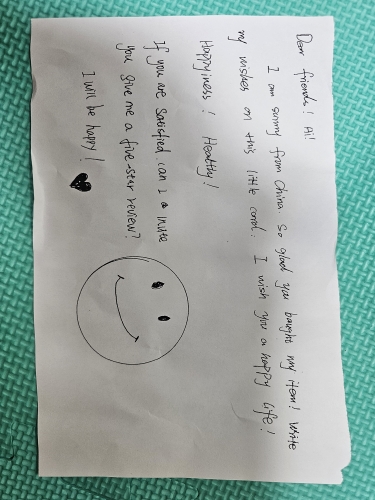 Dear friends! Hi!
I am sunny from China. So glad you bought my item! Write
my wishes on this little card. I wish you a happy life!
Happyiness! Healthy!
If you are satisfied, can I a invite
you give me a five-star review?
I will be happy!